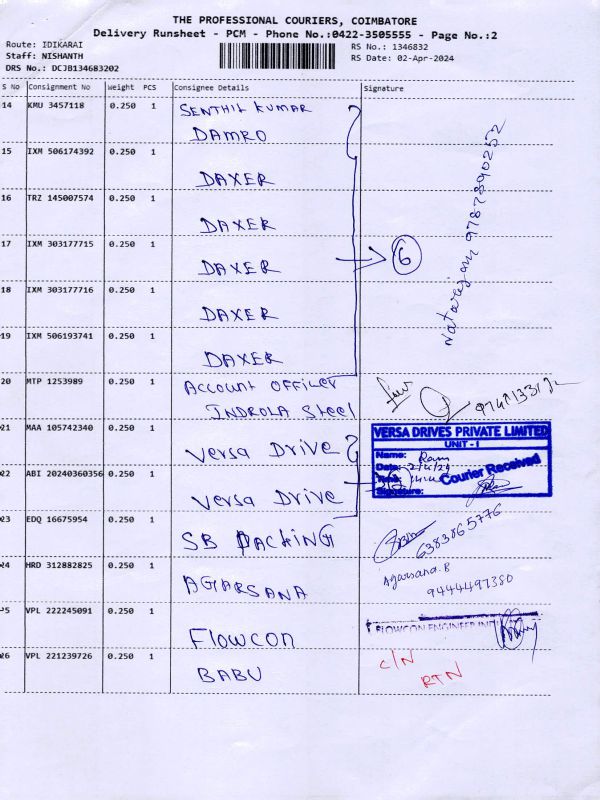 THE PROFESSIONAL COURIERS, COIMBATORE
Delivery Runsheet - PCM - Phone No.:0422-3505555 - Page No.:2
Route: IDIKARAI
Staff: NISHANTH
DRS No.: DCJB134683202
RS No.: 1346832
RS Date: 02-Apr-2024
S No Consignment No Weight PCS Consignee Details Signature
14 KMU 3457118 0.250 1 SENTHIL KUMAR
DAMRO
15 IXM 506174392 0.250 1 DAXER
16 TRZ 145007574 0.250 1 DAXER
17 IXM 303177715 0.250 1 DAXER
6
Natarajan 9787890252
18 IXM 303177716 0.250 1 DAXER
19 IXM 506193741 0.250 1 DAXER
20 MTP 1253989 0.250 1 Account Officer
INDROLA Steel
21 MAA 105742340 0.250 1 Versa Drive
VERSA DRIVES PRIVATE LIMITED
UNIT - I
Name: Ram
Date: 2/4/24
Courier Received
Signature:
22 ABI 20240360356 0.250 1 Versa Drive
23 EDQ 16675954 0.250 1 SB PACKING
6383865776
24 HRD 312882825 0.250 1 AGARSANA
Agarsana.B
9444497380
25 VPL 222245091 0.250 1 Flowcon
FLOWCON ENGINEER IND
26 VPL 221239726 0.250 1 BABU
C/N
RTN